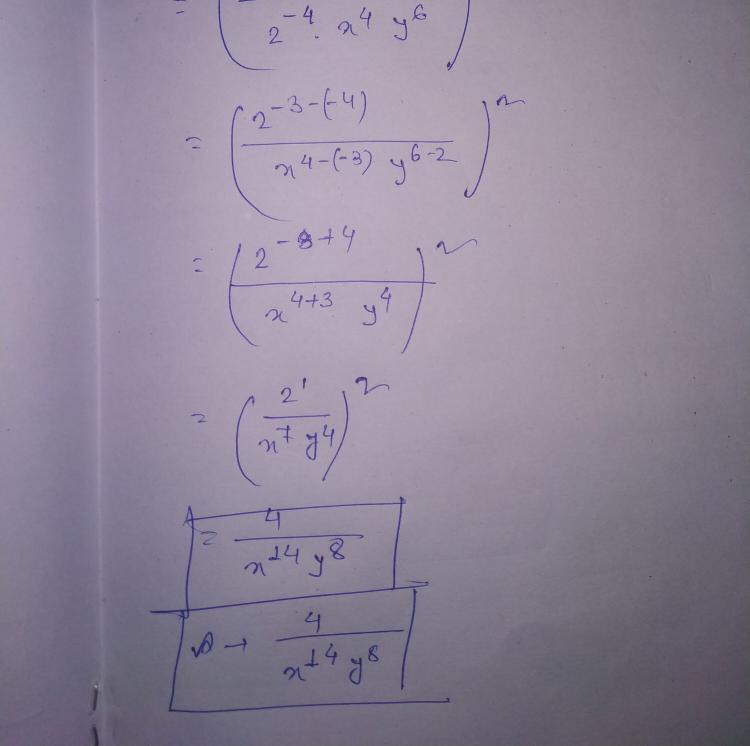 = ( 2^-4 . x^4 y^6 )
= ( 2^-3-(-4) / x^4-(-3) y^6-2 )^2
= ( 2^-3+4 / x^4+3 y^4 )^2
= ( 2^1 / x^7 y^4 )^2
= 4 / x^14 y^8
→ 4 / x^14 y^8